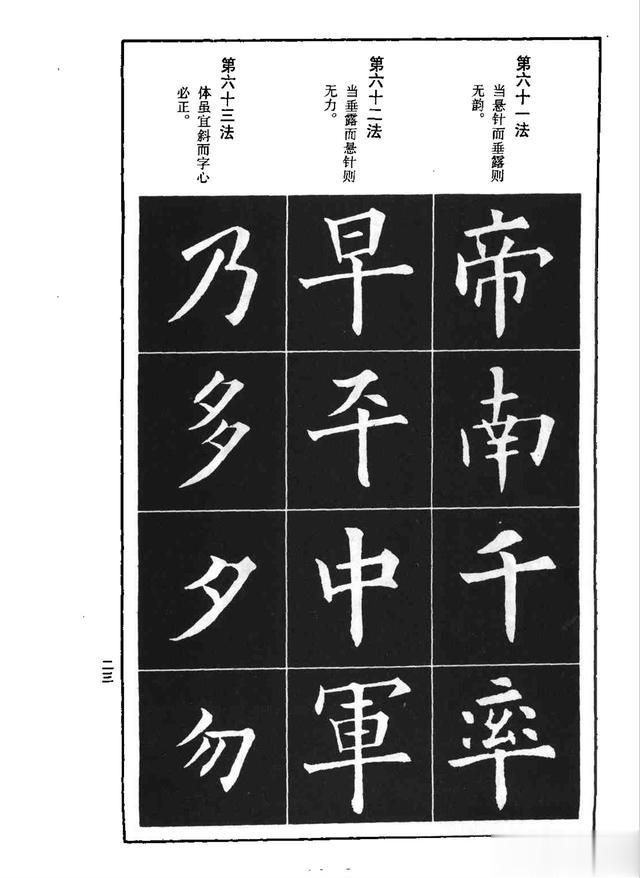 第六十一法
当悬针而垂露则
无韵。
帝南千率
第六十二法
当垂露而悬针则
无力。
早平中軍
第六十三法
体虽宜斜而字心
必正。
乃多夕勿
二三